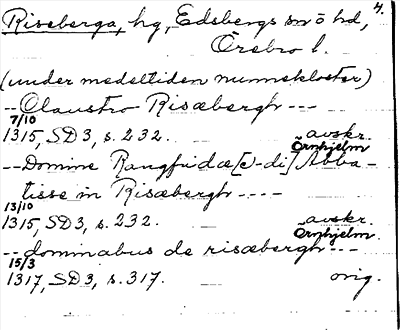 4.
Riseberga, hg, Edsbergs sn o hd,
Örebro l.
(under medeltiden nunnekloster)
-- Claustro Risæbergh ---
7/10
1315, SD 3, s. 232. avskr.
Örnhjelm
-- Domine Rangfridæ [e-di] Abba-
tisse in Risæbergh ----
13/10
1315, SD 3, s. 232. avskr.
Örnhjelm
-- dominabus de risæbergh ---
15/3
1317, SD 3, s. 317. orig.